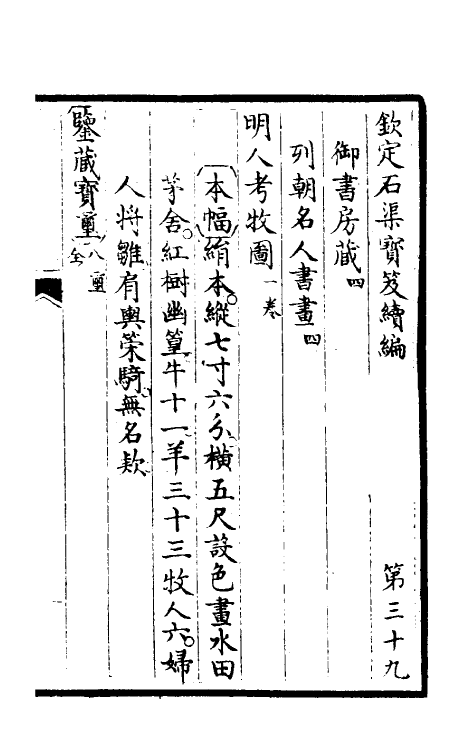 欽定石渠寶笈續編 第三十九
御書房藏四
列朝名人書畫四
明人考牧圖一卷
本幅絹本縱七寸六分橫五尺設色畫水田
茅舍紅樹幽篁牛十一羊三十三牧人六婦
人將雛有輿策騎無名款
鑒藏寶璽八璽全